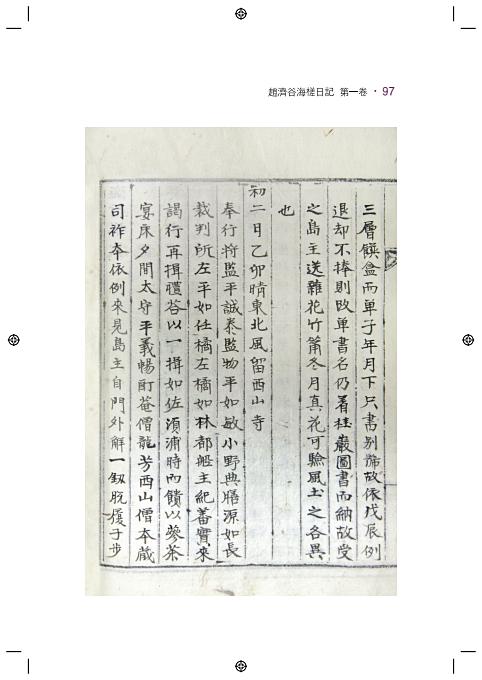 趙濟谷海槎日記 第一卷 · 97
三層饌盒而單子年月下只書別號故依戊辰例
退却不捧則改單書名仍着桂巖圖書而納故受
之島主送雜花竹筩冬月真花可驗風土之各異
也
初二日乙卯晴東北風留西山寺
奉行將監平誠泰監物平如敏小野典膳源如長
裁判所左平如任橘左橘如林都舡主紀蕃實來
謁行再揖禮答以一揖如佐湏浦時而饋以蔘茶
宴床夕間太守平義暢酊菴僧龍芳西山僧本藏
司祚奉依例來見島主自門外解一釼脫屨子步